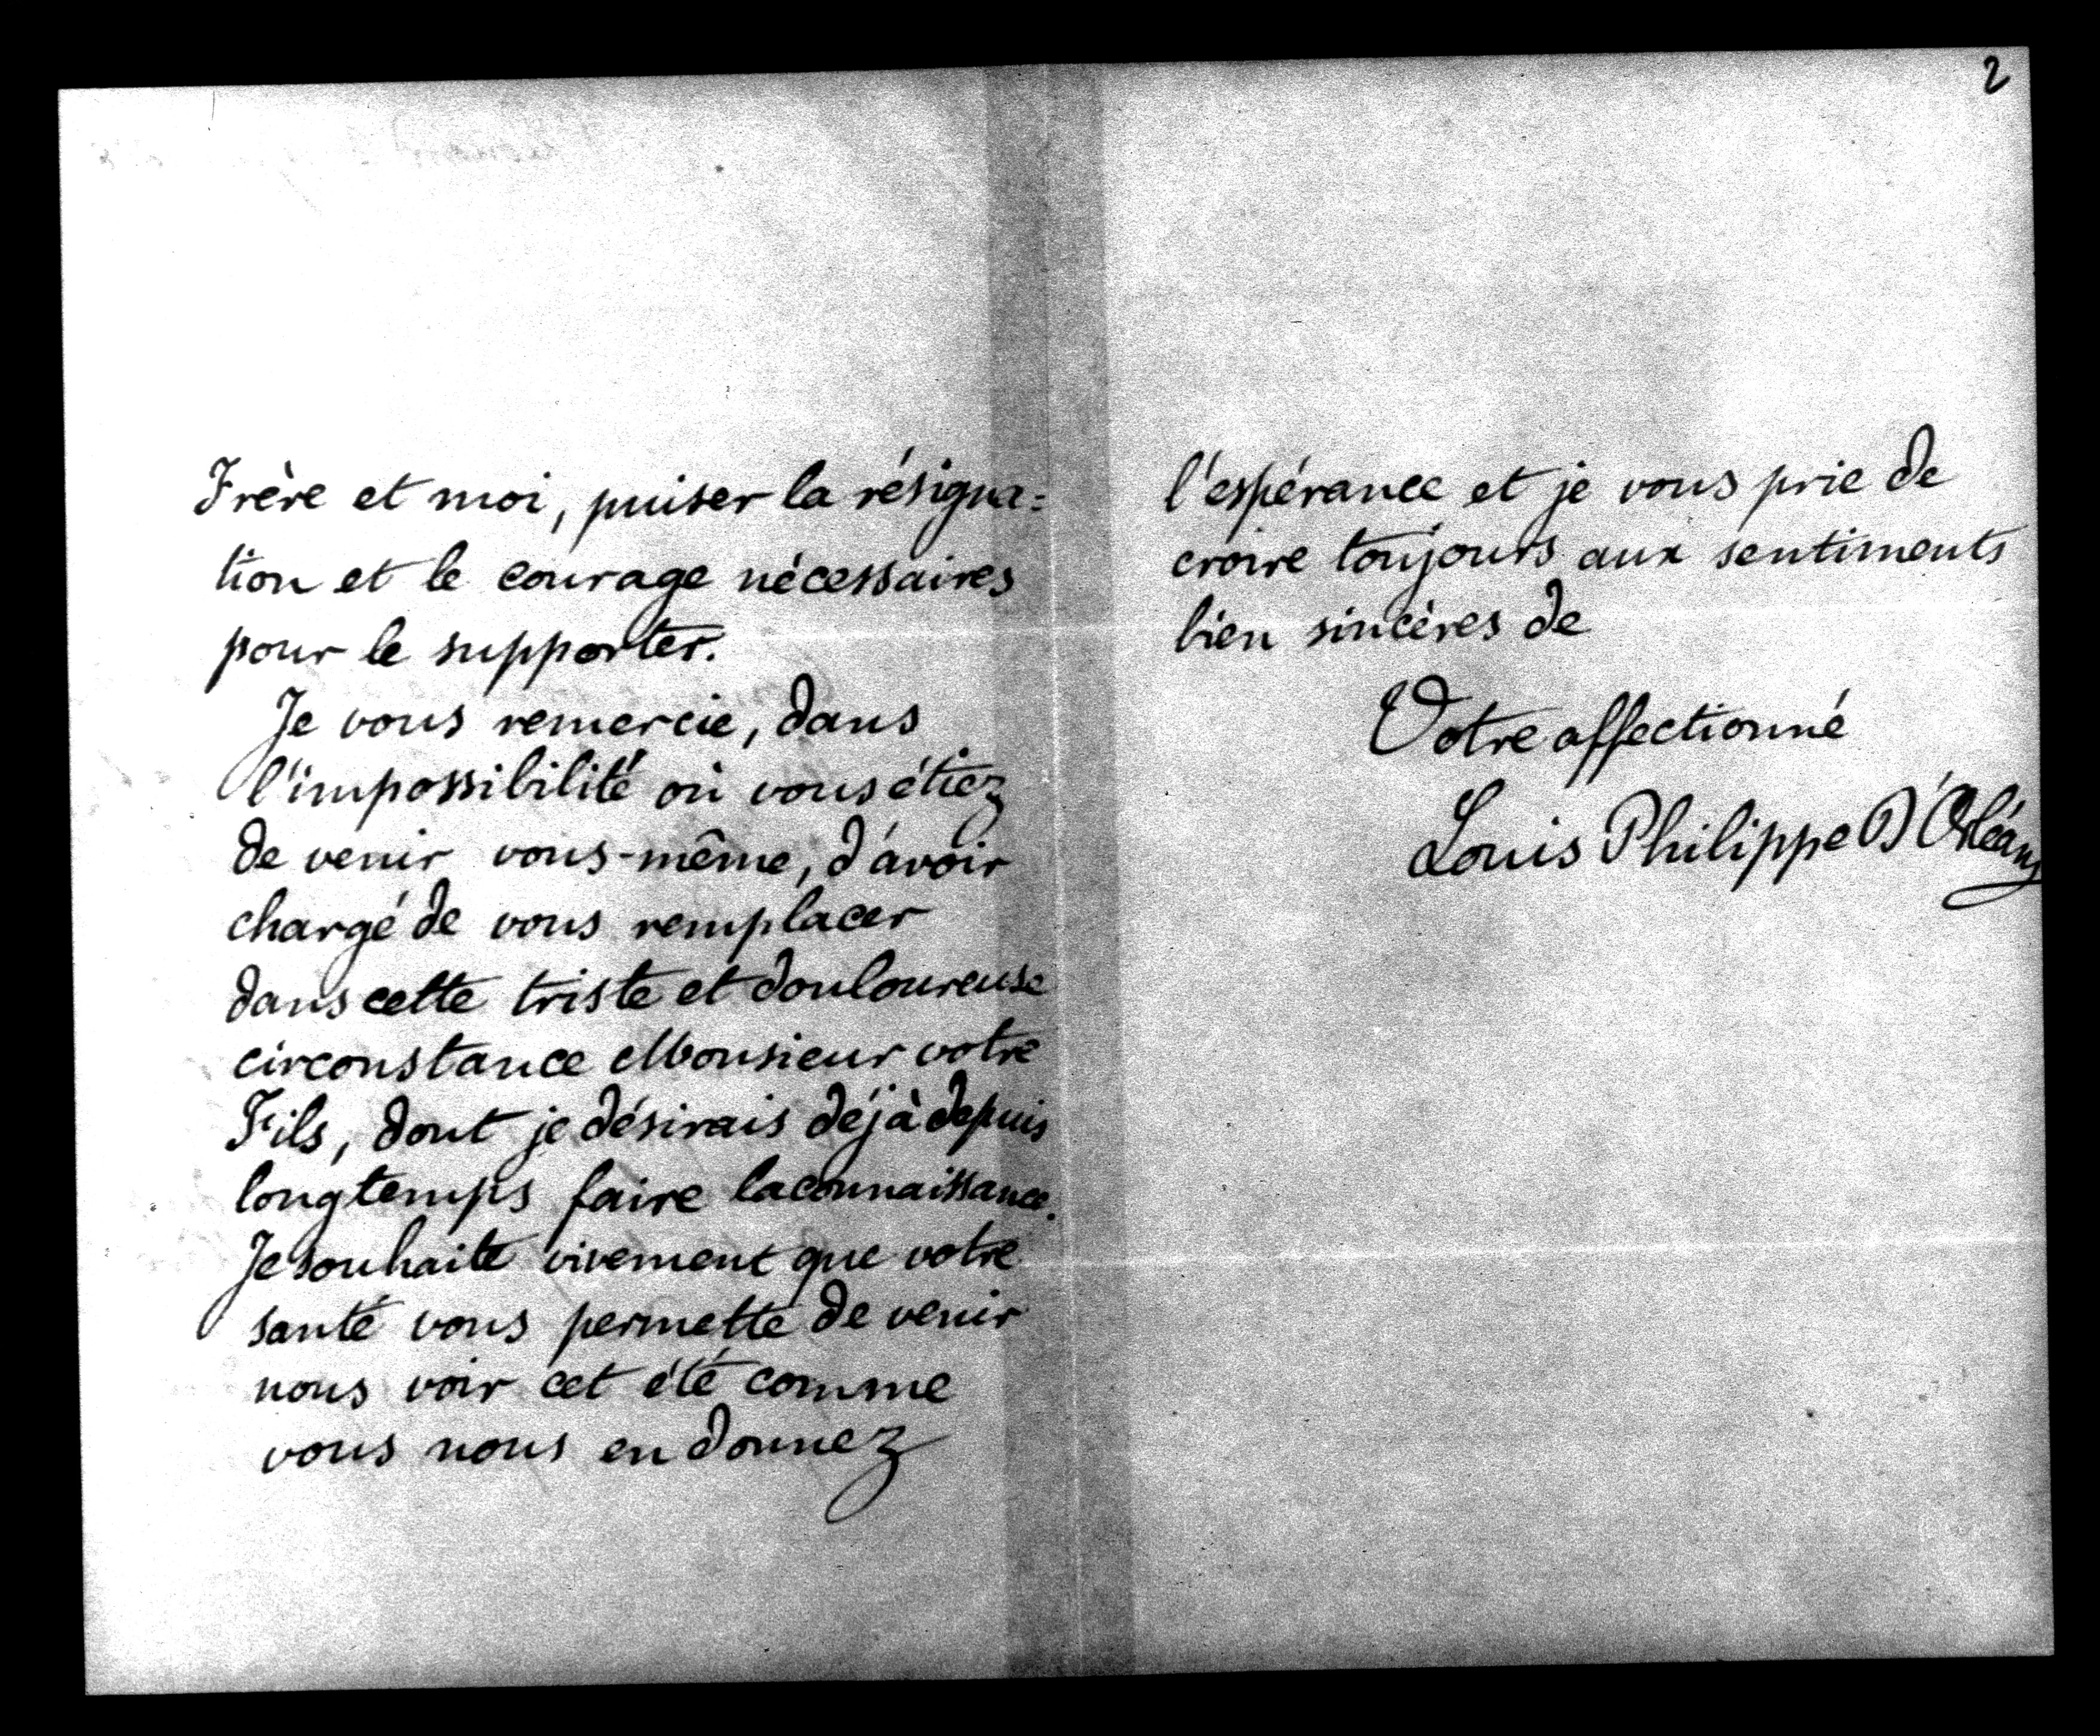 Frère et moi, puiser la résigna=
tion et le courage nécessaires
pour le supporter.
Je vous remercie, dans
l'impossibilité où vous étiez
de venir vous-même, d'avoir
chargé de vous remplacer
dans cette triste et douloureuse
circonstance Monsieur votre
Fils, dont je désirais déjà depuis
longtemps faire la connaissance.
Je souhaite vivement que votre
santé vous permette de venir
nous voir cet été comme
vous nous en donnez
2
l'espérance et je vous prie de
croire toujours aux sentiments
bien sincères de
Votre affectionné
Louis Philippe D'Orléans